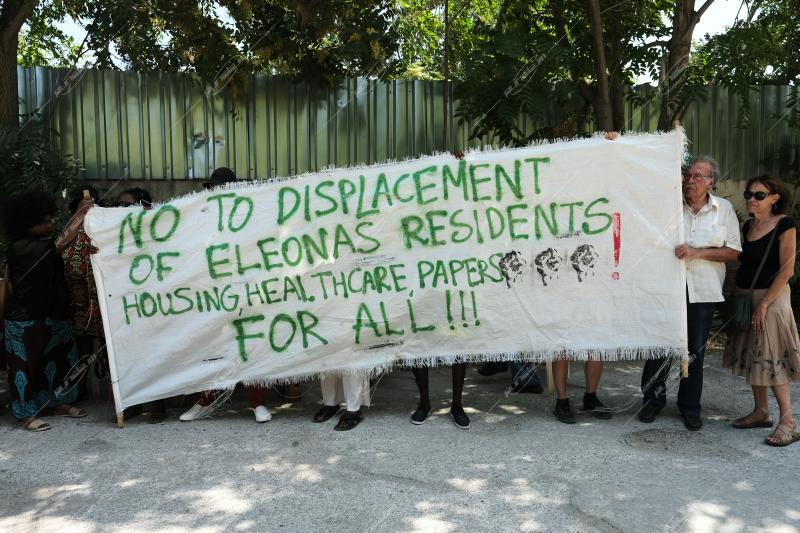 NO TO DISPLACEMENT
OF ELEONAS RESIDENTS
HOUSING, HEALTHCARE, PAPERS !
FOR ALL!!!